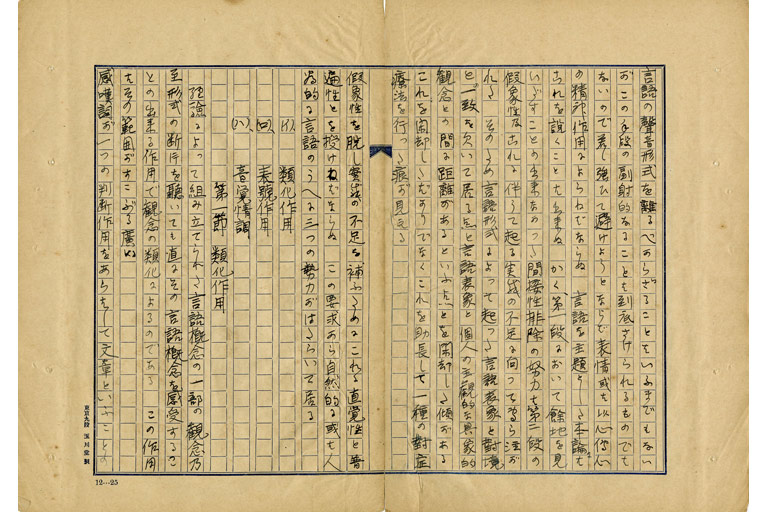 言語の聲音形式を離るべあらざることをいふまでもない
がこの手段の副射的なることを到底さけられるものでも
ないので若し強ひて避けようとならば表情或を以心傳心
の精神作用によらねばならぬ 言語を主題とした本論も
これを說くことを出来ぬ かく第一段において餘地を見
いだすことの出来なかった間接性排除の努力を第二段の
假象性及これに伴うて起る実感の不足に向って
れる そのため言語形式によって起った言語表象と對境
と一致を欠いて居る点と言語表象と個人の主觀的な具象的
觀念との間に距離があるといふ点とを閑却した傾がある
これを閑却したばかりでなくこれを助長して一種の對症
療法を行った痕が見える
假象性を脫し実感の不足を補ふためにこれに直覺性と普
遍性を授けねばならぬ この要求から自然的に或を人
為的に言語のうへに三つの勢力がはたらいて居る
(イ)、類化作用
(ロ)、表號作用
(ハ)、音覺情調
第一節 類化作用
經驗によって組み立てられた言語概念の一部の觀念乃
至形式の断片を聽いても直にその言語概念を感受するこ
との出来る作用で觀念の類化によるのである この作用
をその範囲がすこぶる廣い
感嘆詞が一つの判断作用をあらはして文章といふことの
東京九段 深川堂製
12…25